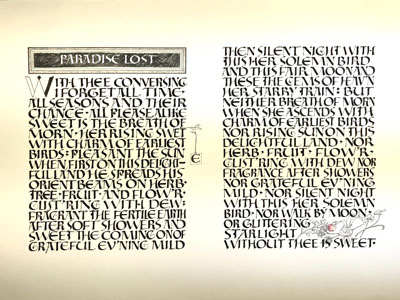 PARADISE LOST
WITH THEE CONVERSING
I FORGET ALL TIME·
ALL SEASONS AND THEIR
CHANCE·ALL PLEASE ALIKE
SWEET IS THE BREATH OF
MORN·HER RISING SWEET
WITH CHARM OF EARLIEST
BIRDS·PLEASANT THE SUN
WHEN FIRST ON THIS DELICHT-
FUL LAND HE SPREADS HIS
ORIENT BEAMS ON HERB·
TREE·FRUIT·AND FLOW'R·
GLIST'RING WITH DEW:
FRAGRANT THE FERTILE EARTH
AFTER SOFT SHOWERS AND
SWEET THE COMING ON OF
GRATEFUL EV'NING MILD
THEN SILENT NIGHT WITH
THIS HER SOLEMN BIRD
AND THIS FAIR MOON AND
THESE THE GEMS OF HEAV'N
HER STARRY TRAIN: BUT
NEITHER BREATH OF MORN
WHEN SHE ASCENDS WITH
CHARM OF EARLIEST BIRDS
NOR RISING SUN ON THIS
DELIGHTFUL LAND· NOR
HERB· FRUIT· FLOW'R·
GLIST'RING WITH DEW NOR
FRAGRANCE AFTER SHOWERS
NOR GRATEFUL EV'NING
MILD· NOR SILENT NIGHT
WITH THIS HER SOLEMN
BIRD· NOR WALK BY MOON·
OR GLITTERING
STARLIGHT
WITHOUT THEE IS SWEET·